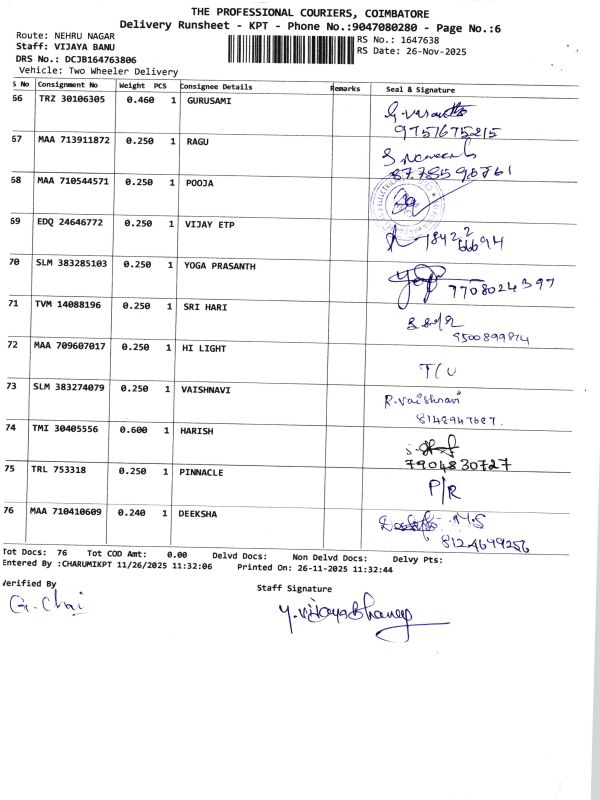 THE PROFESSIONAL COURIERS, COIMBATORE
Delivery Runsheet - KPT - Phone No.:9047080280 - Page No.:6
Route: NEHRU NAGAR
RS No.: 1647638
Staff: VIJAYA BANU
RS Date: 26-Nov-2025
DRS No.: DCJB164763806
Vehicle: Two Wheeler Delivery
S No Consignment No Weight PCS Consignee Details Remarks Seal & Signature
66 TRZ 30106305 0.460 1 GURUSAMI
9751675215
67 MAA 713911872 0.250 1 RAGU
68 MAA 710544571 0.250 1 POOJA
69 EDQ 24646772 0.250 1 VIJAY ETP
70 SLM 383285103 0.250 1 YOGA PRASANTH
7708024397
71 TVM 14088196 0.250 1 SRI HARI
72 MAA 709607017 0.250 1 HI LIGHT
73 SLM 383274079 0.250 1 VAISHNAVI
R.vaishnavi
74 TMI 30405556 0.600 1 HARISH
7904830727
75 TRL 753318 0.250 1 PINNACLE
P/R
76 MAA 710410609 0.240 1 DEEKSHA
8124699256
Tot Docs: 76 Tot COD Amt: 0.00 Delvd Docs: Non Delvd Docs: Delvy Pts:
Entered By :CHARUMIKPT 11/26/2025 11:32:06 Printed On: 26-11-2025 11:32:44
Verified By
Staff Signature
G. Chai